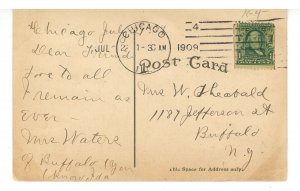 Chicago July
Dear Friend
love to all
I remain as
ever —
Mrs Waters
of Buffalo
CHICAGO
JUL 4
1-30AM 1909
ILL.
Post Card
Mrs W. Theabald
1187 Jefferson st
Buffalo
N.Y.
Space for Address only.